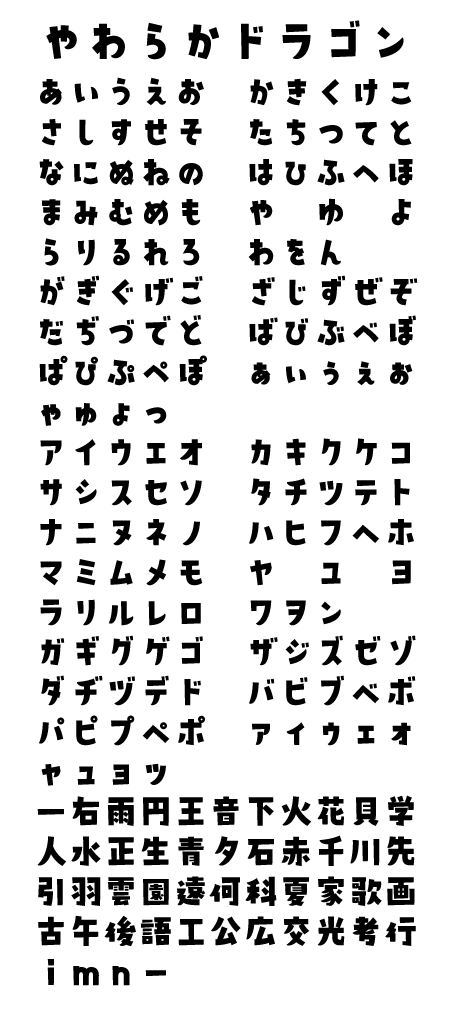 やわらかドラゴン
あいうえお かきくけこ
さしすせそ たちつてと
なにぬねの はひふへほ
まみむめも や ゆ よ
らりるれろ わをん
がぎぐげご ざじずぜぞ
だぢづでど ばびぶべぼ
ぱぴぷぺぽ ぁぃぅぇぉ
ゃゅょっ
アイウエオ カキクケコ
サシスセソ タチツテト
ナニヌネノ ハヒフヘホ
マミムメモ ヤ ユ ヨ
ラリルレロ ワヲン
ガギグゲゴ ザジズゼゾ
ダヂヅデド バビブベボ
パピプペポ ァィゥェォ
ャュョッ
一右雨円王音下火花貝学
人水正生青夕石赤千川先
引羽雲園遠何科夏家歌画
古午後語工公広交光考行
imnー